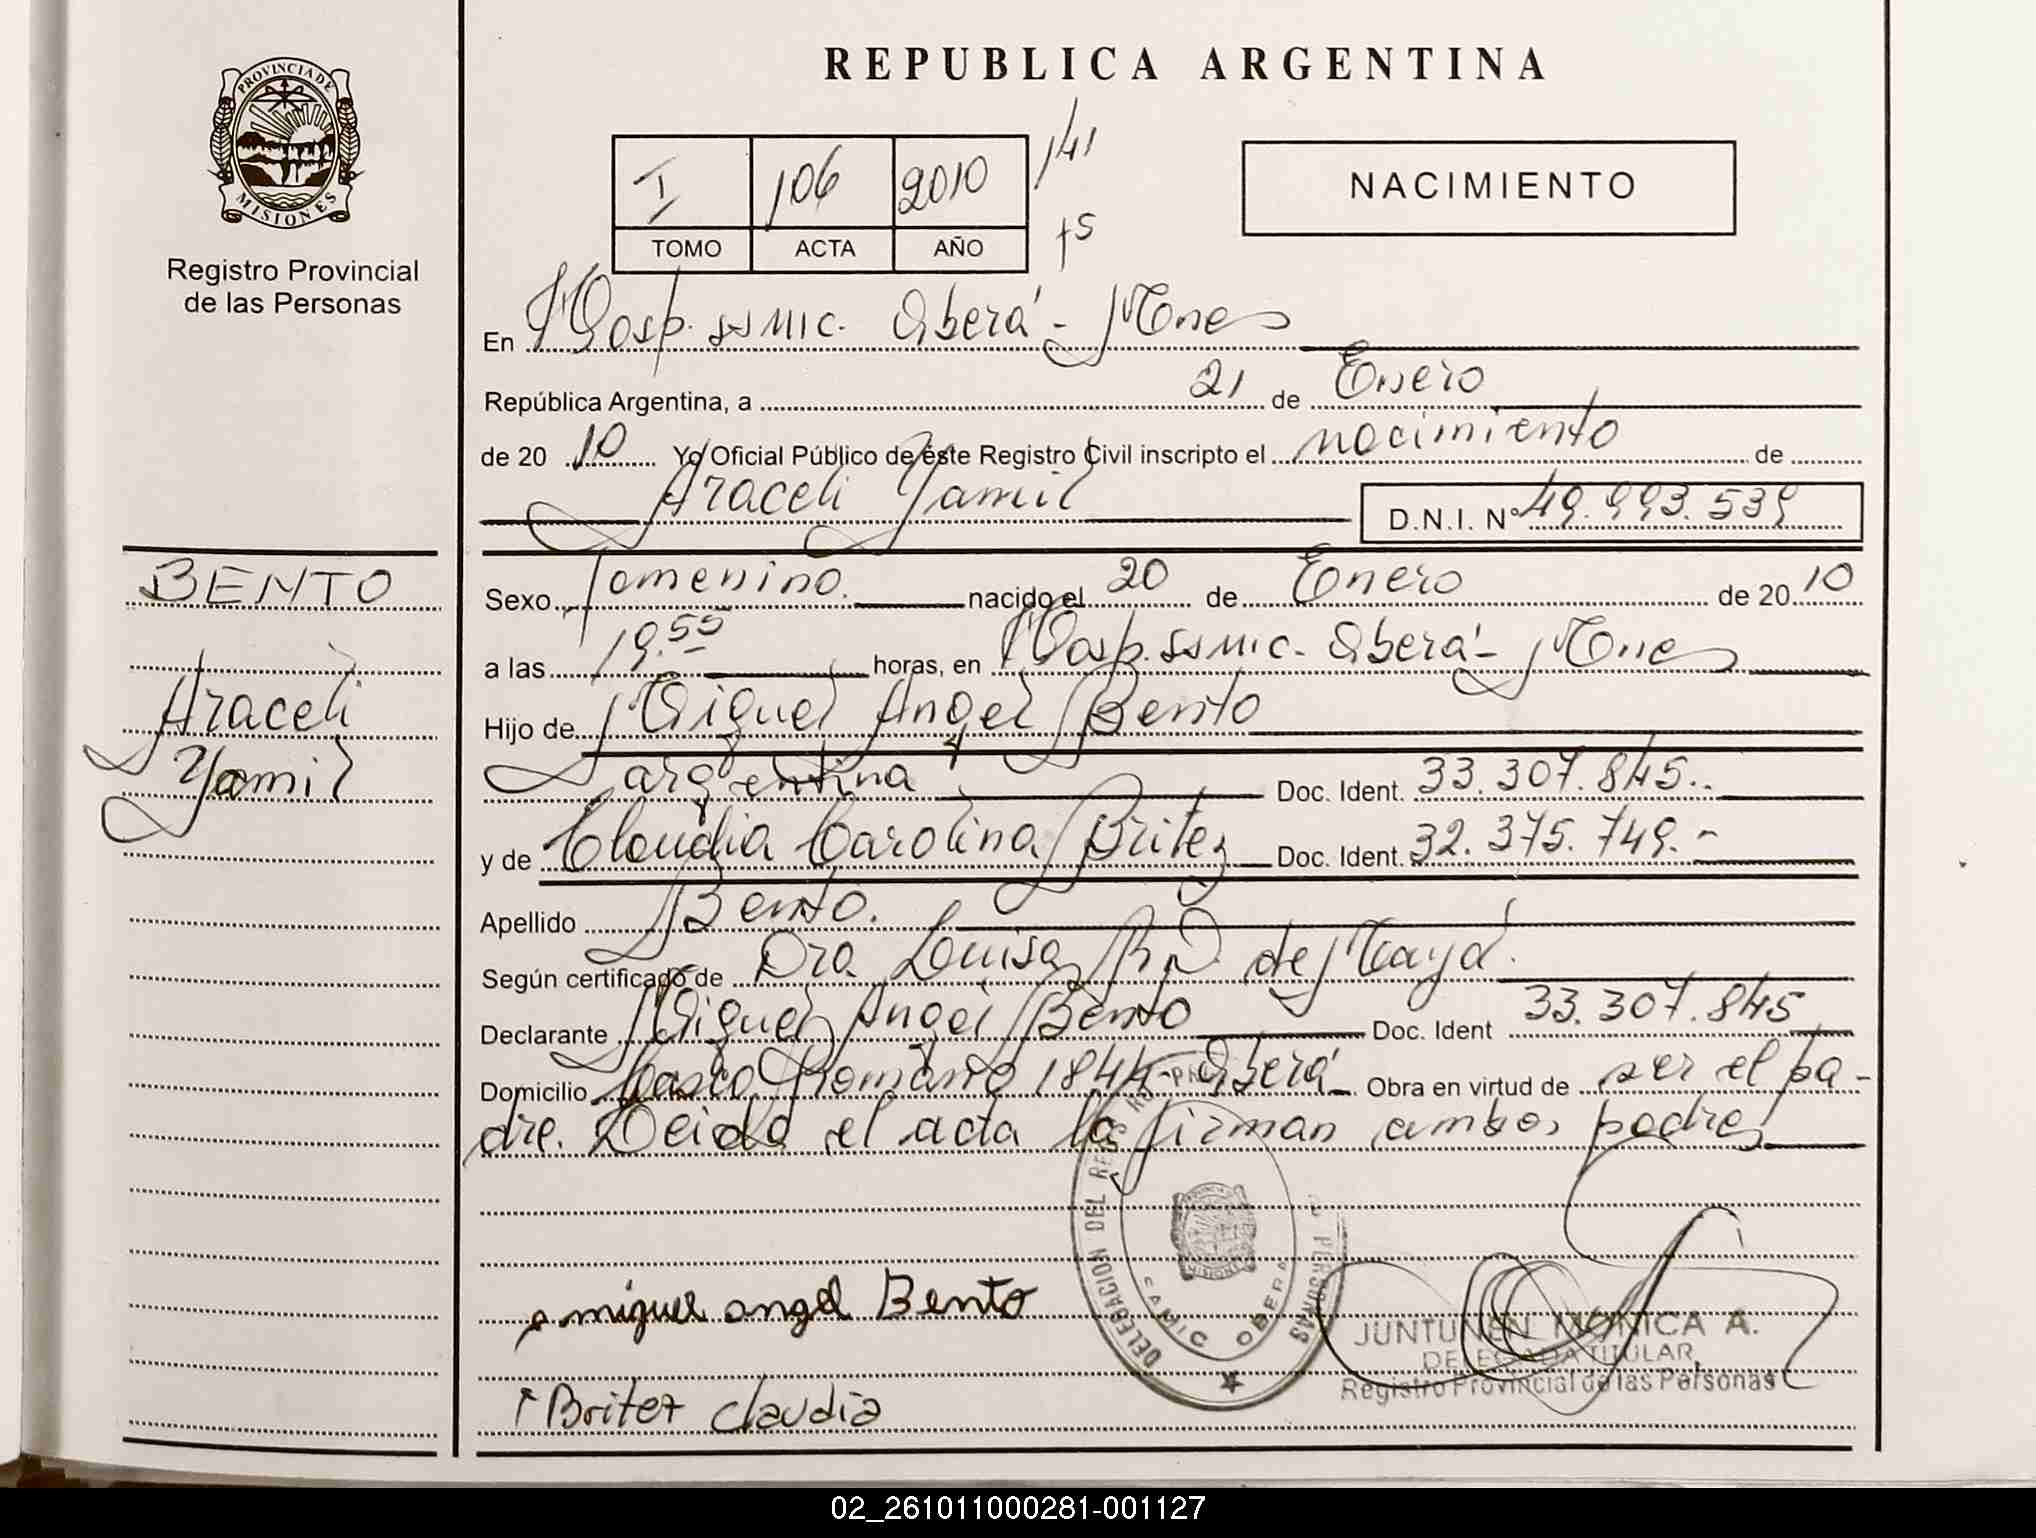 REPUBLICA ARGENTINA
PROVINCIA DE
MISIONES
Registro Provincial
de las Personas
I 106 2010 141
TOMO ACTA AÑO
NACIMIENTO
En Hosp. ssmic. Oberá - Mnes
República Argentina, a 21 de Enero
de 20 10 Yo Oficial Público de éste Registro Civil inscripto el nacimiento de
Araceli Yamil D.N.I. Nº 49.993.539
BENTO
Araceli
Yamil
Sexo femenino. nacido el 20 de Enero de 20 10
a las 19.55 horas, en Hosp. ssmic. Oberá - Mnes
Hijo de Miguel Angel Bento
argentina Doc. Ident. 33.307.845.-
y de Claudia Carolina Britez Doc. Ident. 32.375.749.-
Apellido Bento.
Según certificado de Dra. Luisa de
Declarante Miguel Angel Bento Doc. Ident 33.307.845
Domicilio 1844 - Oberá Obra en virtud de ser el pa-
dre. Leida el acta la firman ambos padres
DELEGACION DEL PERSONAS
SAMIC OBERA
miguel angel Bento
JUNTUNEN MONICA A.
DELEGADA TITULAR
Registro Provincial de las Personas
Britez claudia
02_261011000281-001127